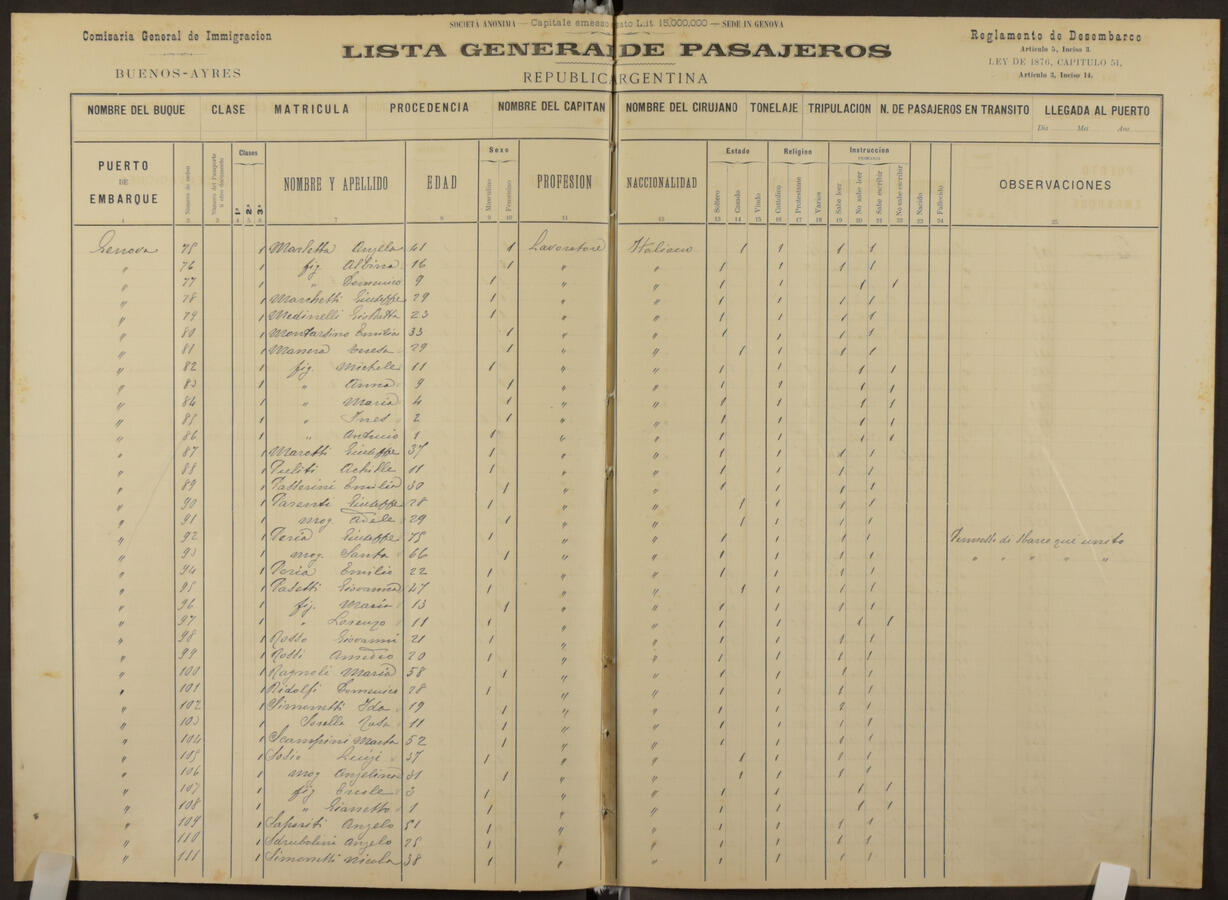 SOCIETÀ ANONIMA — Capitale emesso ato L.it 15,000,000 — SEDE IN GENOVA
Comisaria General de Immigracion
BUENOS-AYRES
LISTA GENERAL DE PASAJEROS
REPUBLIC ARGENTINA
Reglamento de Desembarco
Articulo 5, Inciso 3.
LEY DE 1876, CAPITULO 51,
Articulo 3, Inciso 14.
NOMBRE DEL BUQUE CLASE MATRICULA PROCEDENCIA NOMBRE DEL CAPITAN NOMBRE DEL CIRUJANO TONELAJE TRIPULACION N. DE PASAJEROS EN TRANSITO LLEGADA AL PUERTO
Dia Mes Ano
PUERTO DE EMBARQUE Número de orden Número del Pasaporte u otro documento Clases 1ª 2ª 3ª NOMBRE Y APELLIDO EDAD Sexo Masculino Femenino PROFESION NACCIONALIDAD Estado Soltero Casado Viudo Religion Cattolico Protestante Varios Instruccion PRIMARIA Sabe leer No sabe leer Sabe escribir No sabe escribir Nacido Fallecido OBSERVACIONES
1 2 3 4 5 6 7 8 9 10 11 12 13 14 15 16 17 18 19 20 21 22 23 24 25
Genova 75 1 Marletta Angela 41 1 Lavoratore Italiano 1 1 1 1
" 76 1 fig. Albina 16 1 " " 1 1 1 1
" 77 1 " Domenico 9 1 " " 1 1 1 1
" 78 1 Marchetti Giuseppe 29 1 " " 1 1 1 1
" 79 1 Medinelli 23 1 " " 1 1 1 1
" 80 1 Montardino Emilia 33 1 " " 1 1 1 1
" 81 1 Manera Teresa 29 1 " " 1 1 1 1
" 82 1 fig. Michele 11 1 " " 1 1 1 1
" 83 1 " Anna 9 1 " " 1 1 1 1
" 84 1 " Maria 4 1 " " 1 1 1 1
" 85 1 " Ines 2 1 " " 1 1 1 1
" 86 1 " Antonio 1 1 " " 1 1 1 1
" 87 1 Maretti Giuseppe 37 1 " " 1 1 1 1
" 88 1 Puliti Achille 11 1 " " 1 1 1 1
" 89 1 Passerini Emilia 30 1 " " 1 1 1 1
" 90 1 Parenti Giuseppe 28 1 " " 1 1 1 1
" 91 1 mog. Adele 29 1 " " 1 1 1 1
" 92 1 Peria Giuseppe 75 1 " " 1 1 1 1
" 93 1 mog. Santa 66 1 " " 1 1 1 1 " " " "
" 94 1 Peria Emilio 22 1 " " 1 1 1 1
" 95 1 Pasetti Giovanni 47 1 " " 1 1 1 1
" 96 1 fig. Maria 13 1 " " 1 1 1 1
" 97 1 " Lorenzo 11 1 " " 1 1 1 1
" 98 1 Rosso Giovanni 21 1 " " 1 1 1 1
" 99 1 Rossi Amedeo 20 1 " " 1 1 1 1
" 100 1 Ragnoli Maria 58 1 " " 1 1 1 1
" 101 1 Ridolfi Domenico 28 1 " " 1 1 1 1
" 102 1 Simonetti Ida 19 1 " " 1 1 1 1
" 103 1 Sorella Rosa 11 1 " " 1 1 1 1
" 104 1 Scampini Marta 52 1 " " 1 1 1 1
" 105 1 Sodio Luigi 37 1 " " 1 1 1 1
" 106 1 mog Angelina 31 1 " " 1 1 1 1
" 107 1 fig Ercole 3 1 " " 1 1 1 1
" 108 1 " Gianetto 1 1 " " 1 1 1 1
" 109 1 Saporiti Angelo 51 1 " " 1 1 1 1
" 110 1 Sdrubolini Angelo 25 1 " " 1 1 1 1
" 111 1 Simonetti Nicola 38 1 " " 1 1 1 1